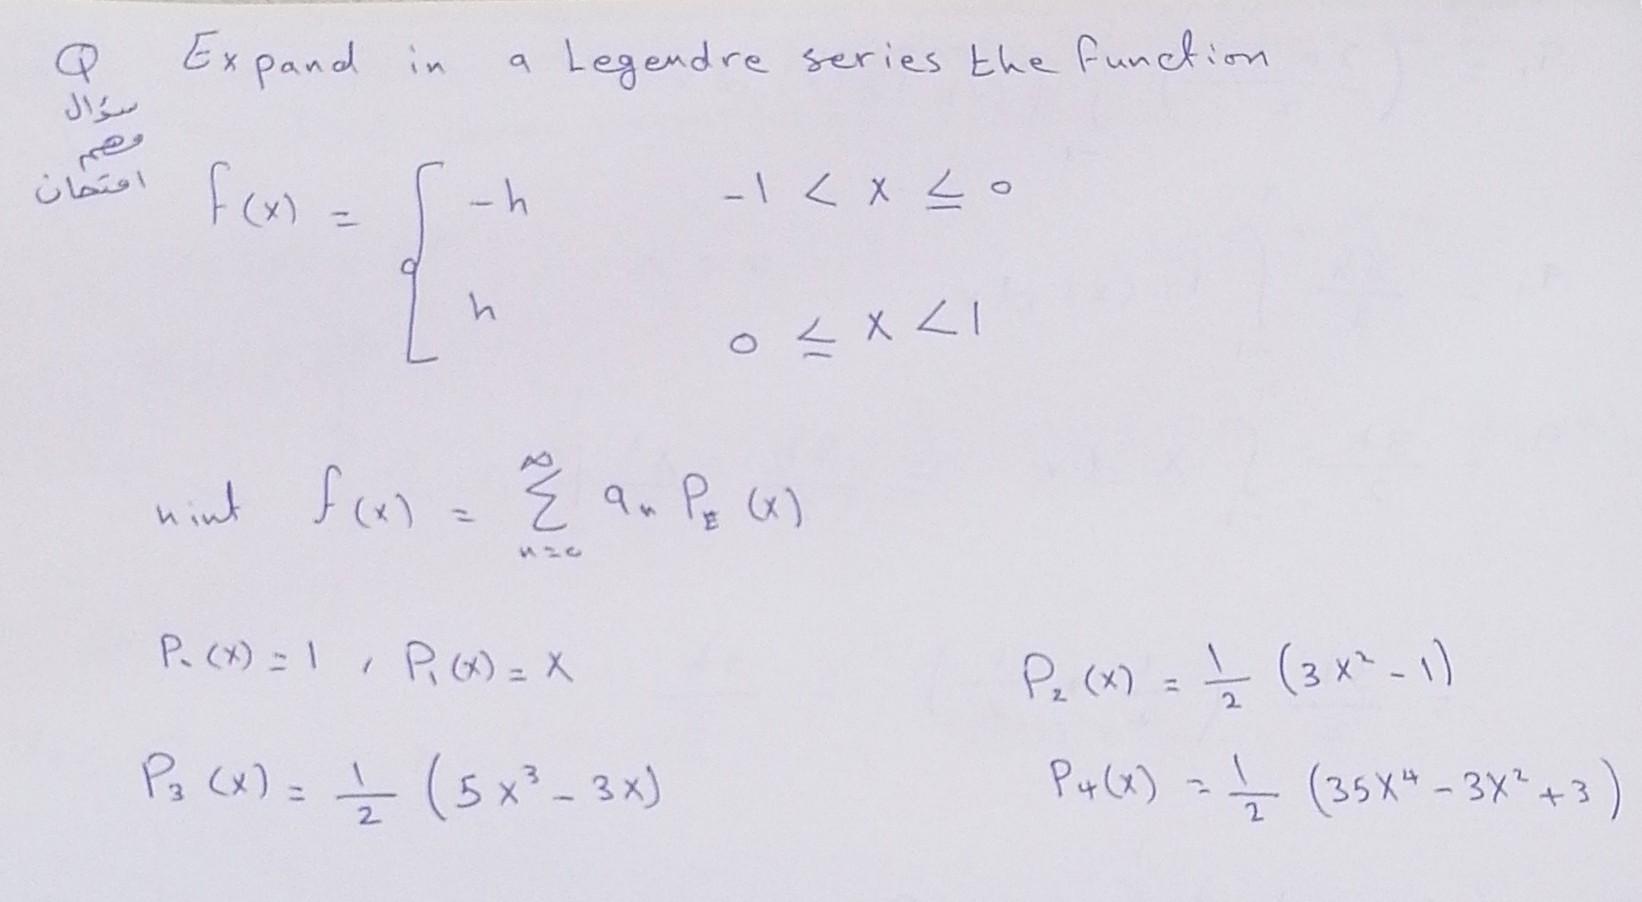 Q Expand in a Legendre series the function
سؤال
مهم
امتحان
f(x) = { -h -1 < x ≤ 0
h 0 ≤ x < 1
hint f(x) = ∑ₙ₌₀^∞ aₙ P (x)
P₀(x) = 1 , P₁(x) = x P₂(x) = 1/2 (3x² - 1)
P₃(x) = 1/2 (5x³ - 3x) P₄(x) = 1/2 (35x⁴ - 3x² + 3)